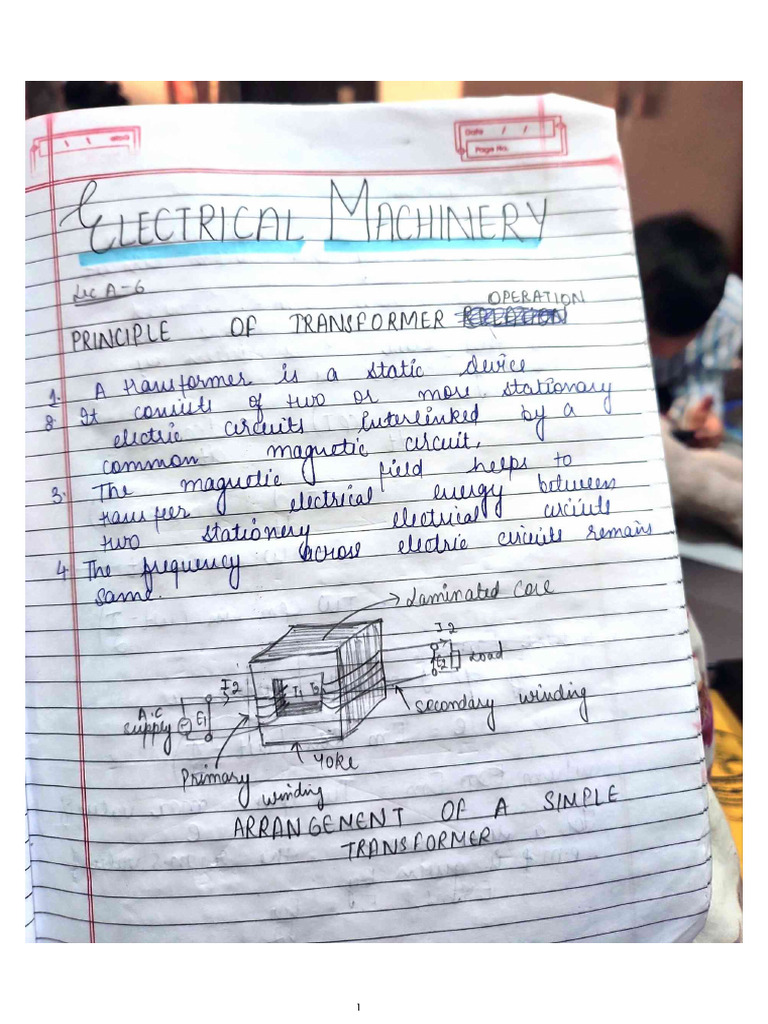 Date / /
Page No.
ELECTRICAL MACHINERY
Lec A-6
OPERATION
PRINCIPLE OF TRANSFORMER
1. A transformer is a static device
8. It consists of two or more stationary
electric circuits interlinked by a
common magnetic circuit.
3. The magnetic field helps to
transfer electrical energy between
two stationery electrical circuits
4. The frequency across electric circuits remains
same.
Laminated Core
I2
E2 Load
I2
T1 T2
A.C
supply E1
secondary winding
Yoke
Primary
winding
ARRANGENENT OF A SIMPLE
TRANSFORMER
1